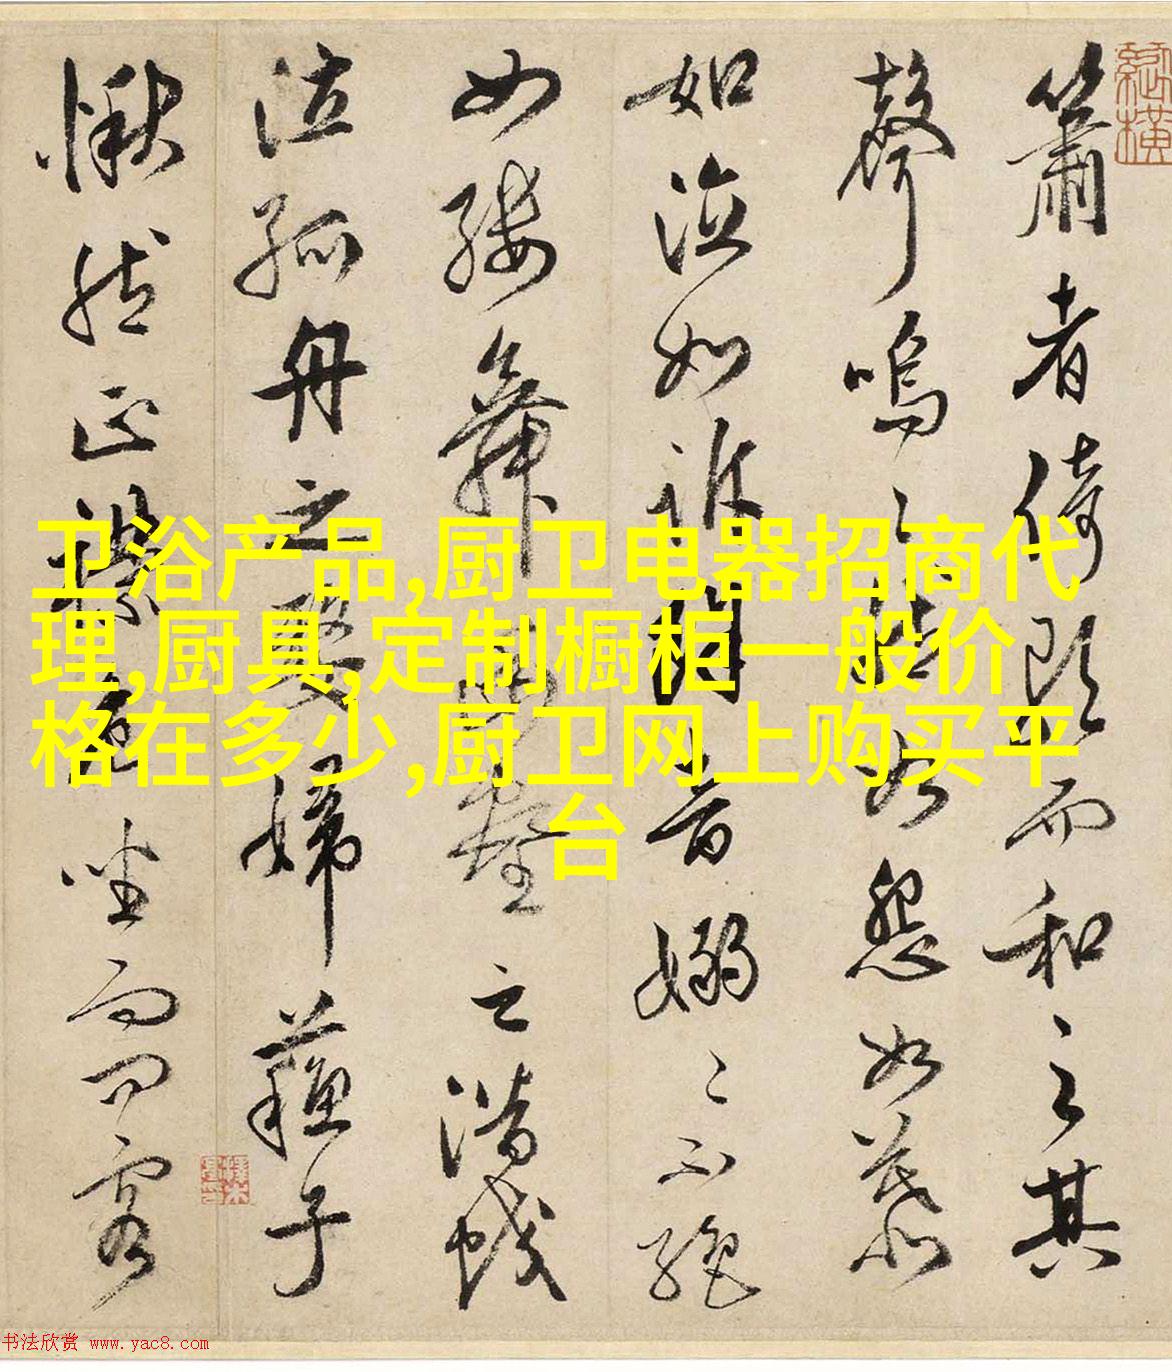 簫者倚歌而和之其
聲嗚〻然如怨如慕
如泣如訴餘音嫋〻不絕
如縷舞幽壑之潛蛟
泣孤舟之嫠婦蘇子
愀然正襟危坐而問客
卫浴产品,厨卫电器招商代
理,厨具,定制橱柜一般价
格在多少,厨卫网上购买平
台
书法欣赏 www.yac8.com